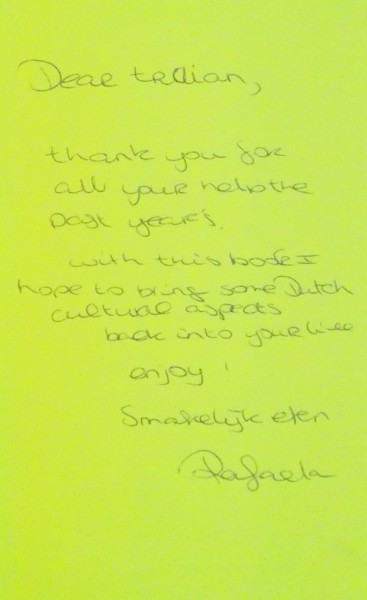 Dear
thank you for
all your help the
past years.
with this book I
hope to bring some Dutch
cultural aspects
back into your live
enjoy!
Smakelijk eten
Rafaela